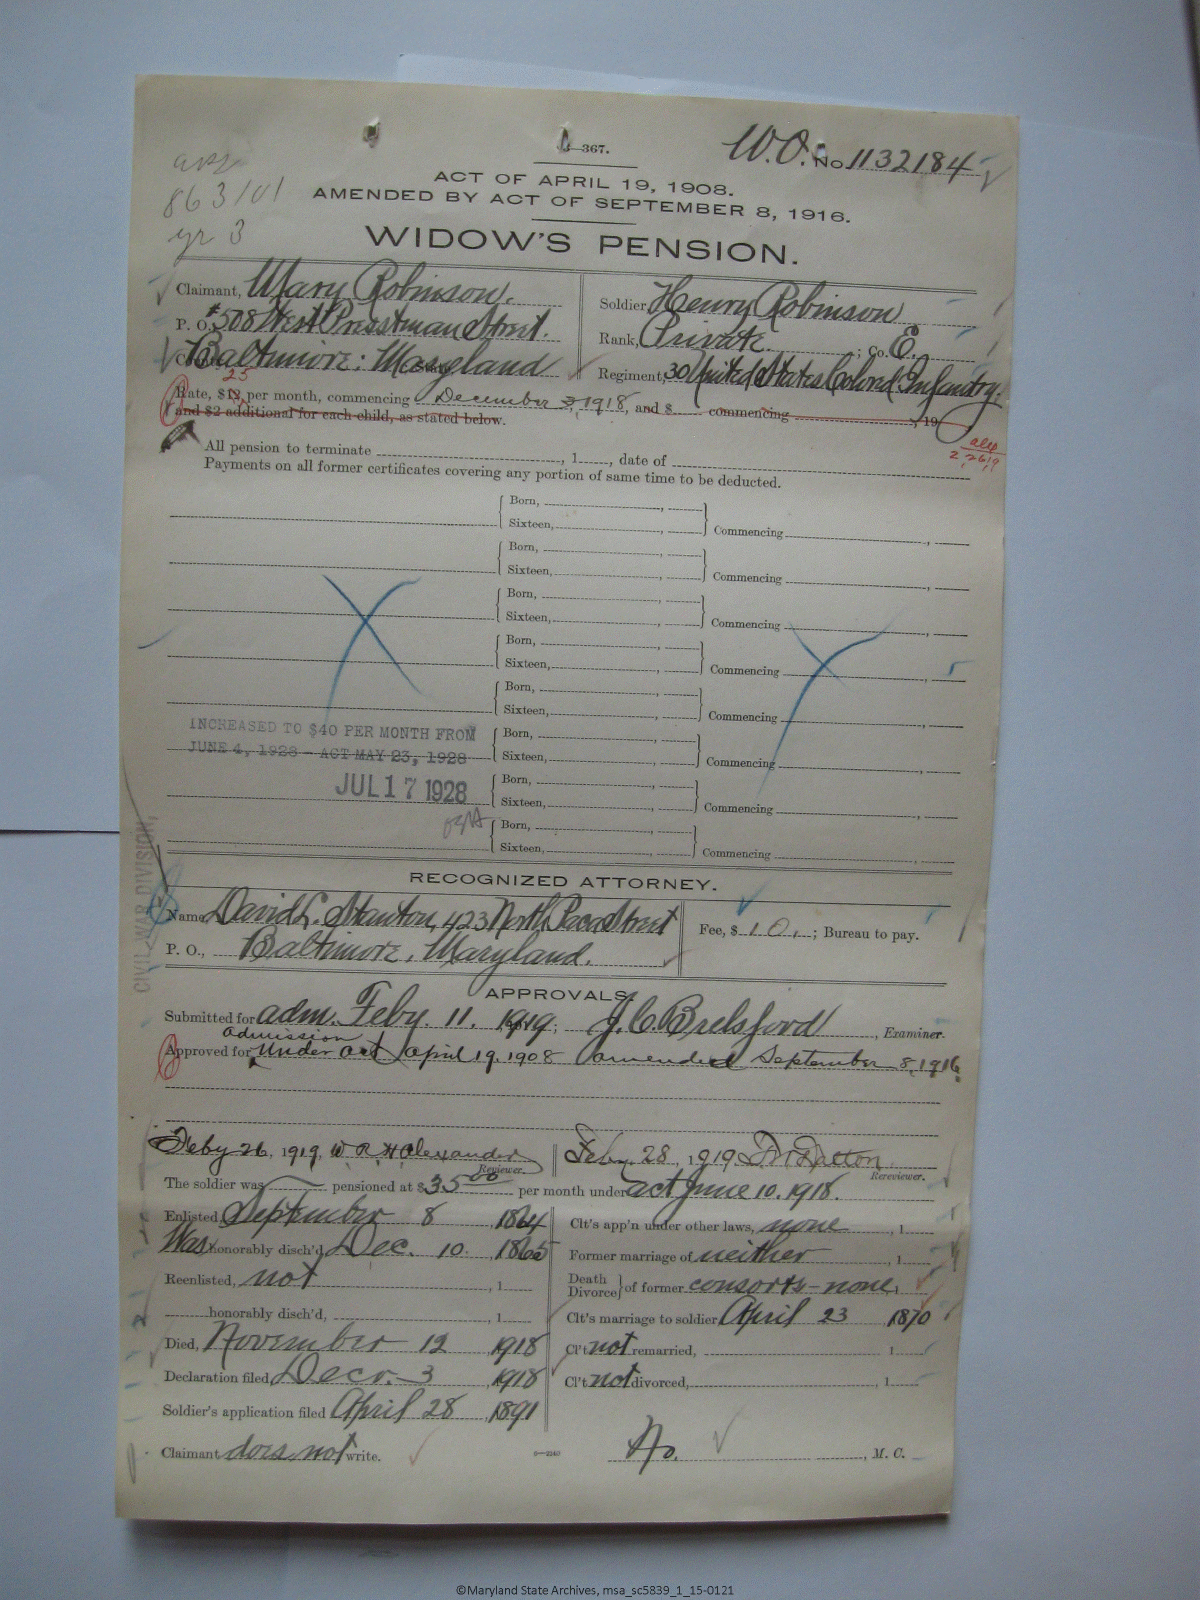 3—367.
W.O. No. 1132184
863101
yr 3
ACT OF APRIL 19, 1908.
AMENDED BY ACT OF SEPTEMBER 8, 1916.
WIDOW'S PENSION.
Claimant, Mary Robinson.
P. O., #508 West Presstman Street.
Baltimore: Maryland
Soldier Henry Robinson
Rank, Private ; Co. E.
Regiment, 30 United States Colored Infantry.
25
Rate, $12 per month, commencing December 3, 1918, and $ commencing , 19
and $2 additional for each child, as stated below.
2,26,19
All pension to terminate , 1 , date of
Payments on all former certificates covering any portion of same time to be deducted.
Born, ,
Sixteen, , Commencing ,
Born, ,
Sixteen, , Commencing ,
Born, ,
Sixteen, , Commencing ,
Born, ,
Sixteen, , Commencing ,
Born, ,
Sixteen, , Commencing ,
INCREASED TO $40 PER MONTH FROM
JUNE 4, 1928 - ACT MAY 23, 1928
Born, ,
Sixteen, , Commencing ,
JUL 17 1928
Born, ,
Sixteen, , Commencing ,
Born, ,
Sixteen, , Commencing ,
CIVIL WAR DIVISION,
RECOGNIZED ATTORNEY.
Name, David L. Stanton, 423 North Paca Street
P. O., Baltimore, Maryland.
Fee, $ 10. ; Bureau to pay.
APPROVALS.
Submitted for adm. Feby. 11, 1919; J. C. Brelsford, Examiner.
admission
Approved for Under act April 19, 1908 amended September 8, 1916.
Feby 26, 1919, W. R. H. Alexander Reviewer.
Feby. 28, 1919 Dalton Rereviewer.
The soldier was pensioned at $35 00 per month under act June 10, 1918.
Enlisted September 8, 1864
Was honorably disch'd, Dec. 10, 1865
Reenlisted, not , 1
honorably disch'd, , 1
Died, November 12, 1918
Declaration filed, Decr. 3, 1918
Soldier's application filed April 28, 1891
Claimant does not write.
Clt's app'n under other laws, none , 1
Former marriage of neither , 1
Death
Divorce } of former consorts - none,
Clt's marriage to soldier April 23 1870
Cl't not remarried, 1
Cl't not divorced, , 1
3—2240
No. , M. C.
©Maryland State Archives, msa_sc5839_1_15-0121